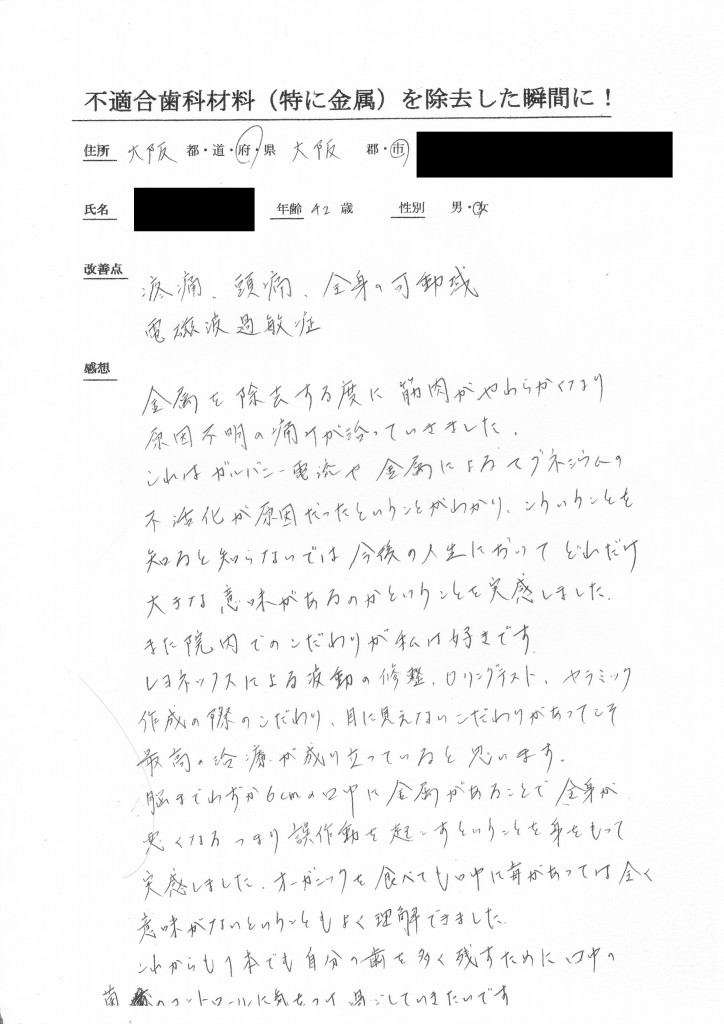 不適合歯科材料（特に金属）を除去した瞬間に！
住所 大阪 都・道・府・県 大阪 郡・市
氏名 年齢 42 歳 性別 男・女
改善点 疼痛、頭痛、全身の可動域
電磁波過敏症
感想
金属を除去する度に筋肉がやわらかくなり
原因不明の痛みが治っていきました。
これはガルバニー電流や金属によるマグネシウムの
不活化が原因だったということがわかり、こういうことを
知ると知らないでは今後の人生においてどれだけ
大きな意味があるのかということを実感しました。
また院内でのこだわりが私は好きです。
レヨネックスによる波動の修整、Oリングテスト、セラミック
作成の際のこだわり、目に見えないこだわりがあってこそ
最高の治療が成り立っていると思います。
脳までわずか6cmの口中に金属があることで全身が
悪くなる つまり誤作動を起こすということを身をもって
実感しました。オーガニックを食べても口中に毒があっては全く
意味がないということもよく理解できました。
これからも1本でも自分の歯を多く残すために口中の
菌のコントロールに気をつけ過ごしていきたいです